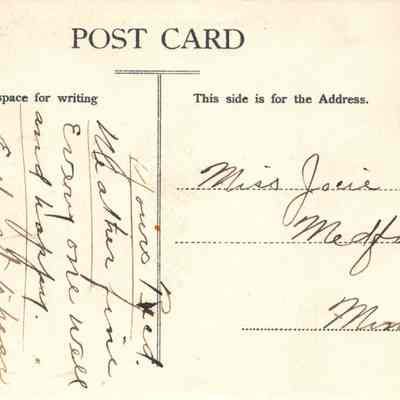 POST CARD
space for writing
This side is for the Address.
Yours Recd.
Weather fine
Every one well
and happy.
Miss Josie
Medfo
Minn